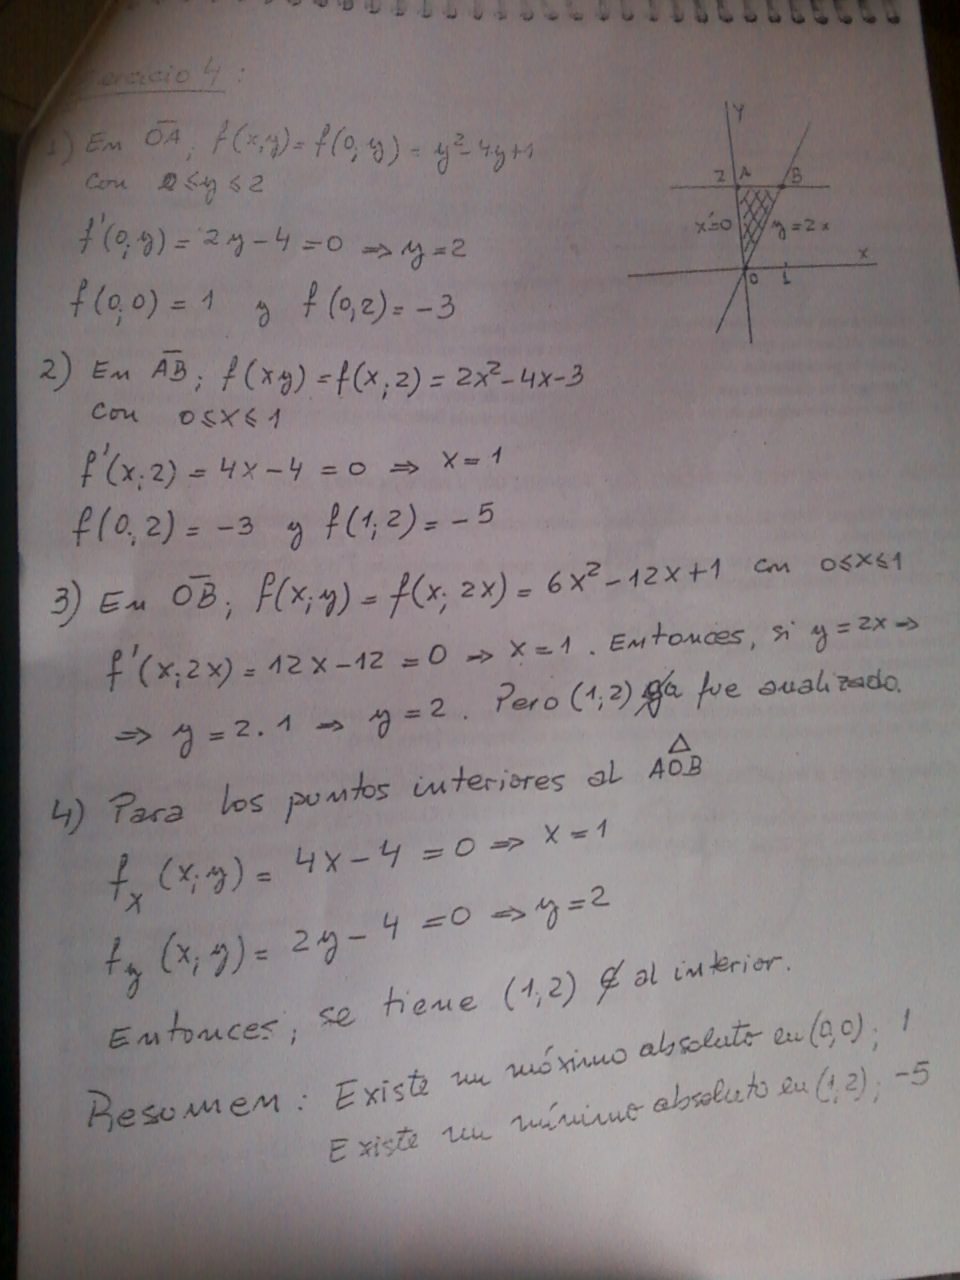 Ejercicio 4:
1) En OA; f(x;y) = f(0;y) = y²-4y+1
con 0≤y≤2
f'(0;y) = 2y-4 = 0 ⇒ y=2
f(0;0) = 1 y f(0;2) = -3
2) En AB; f(x;y) = f(x;2) = 2x²-4x-3
con 0≤x≤1
f'(x;2) = 4x-4 = 0 ⇒ x=1
f(0;2) = -3 y f(1;2) = -5
3) En OB; f(x;y) = f(x;2x) = 6x²-12x+1 con 0≤x≤1
f'(x;2x) = 12x-12 = 0 ⇒ x=1. Entonces, si y=2x ⇒
⇒ y=2.1 ⇒ y=2. Pero (1;2) ya fue analizado.
4) Para los puntos interiores al AOB
fx (x;y) = 4x-4 = 0 ⇒ x=1
fy (x;y) = 2y-4 = 0 ⇒ y=2
Entonces; se tiene (1;2) ∉ al interior.
Resumen: Existe un máximo absoluto en (0;0); 1
Existe un mínimo absoluto en (1;2); -5
y
2 A B
x=0 y=2x
x
0 1